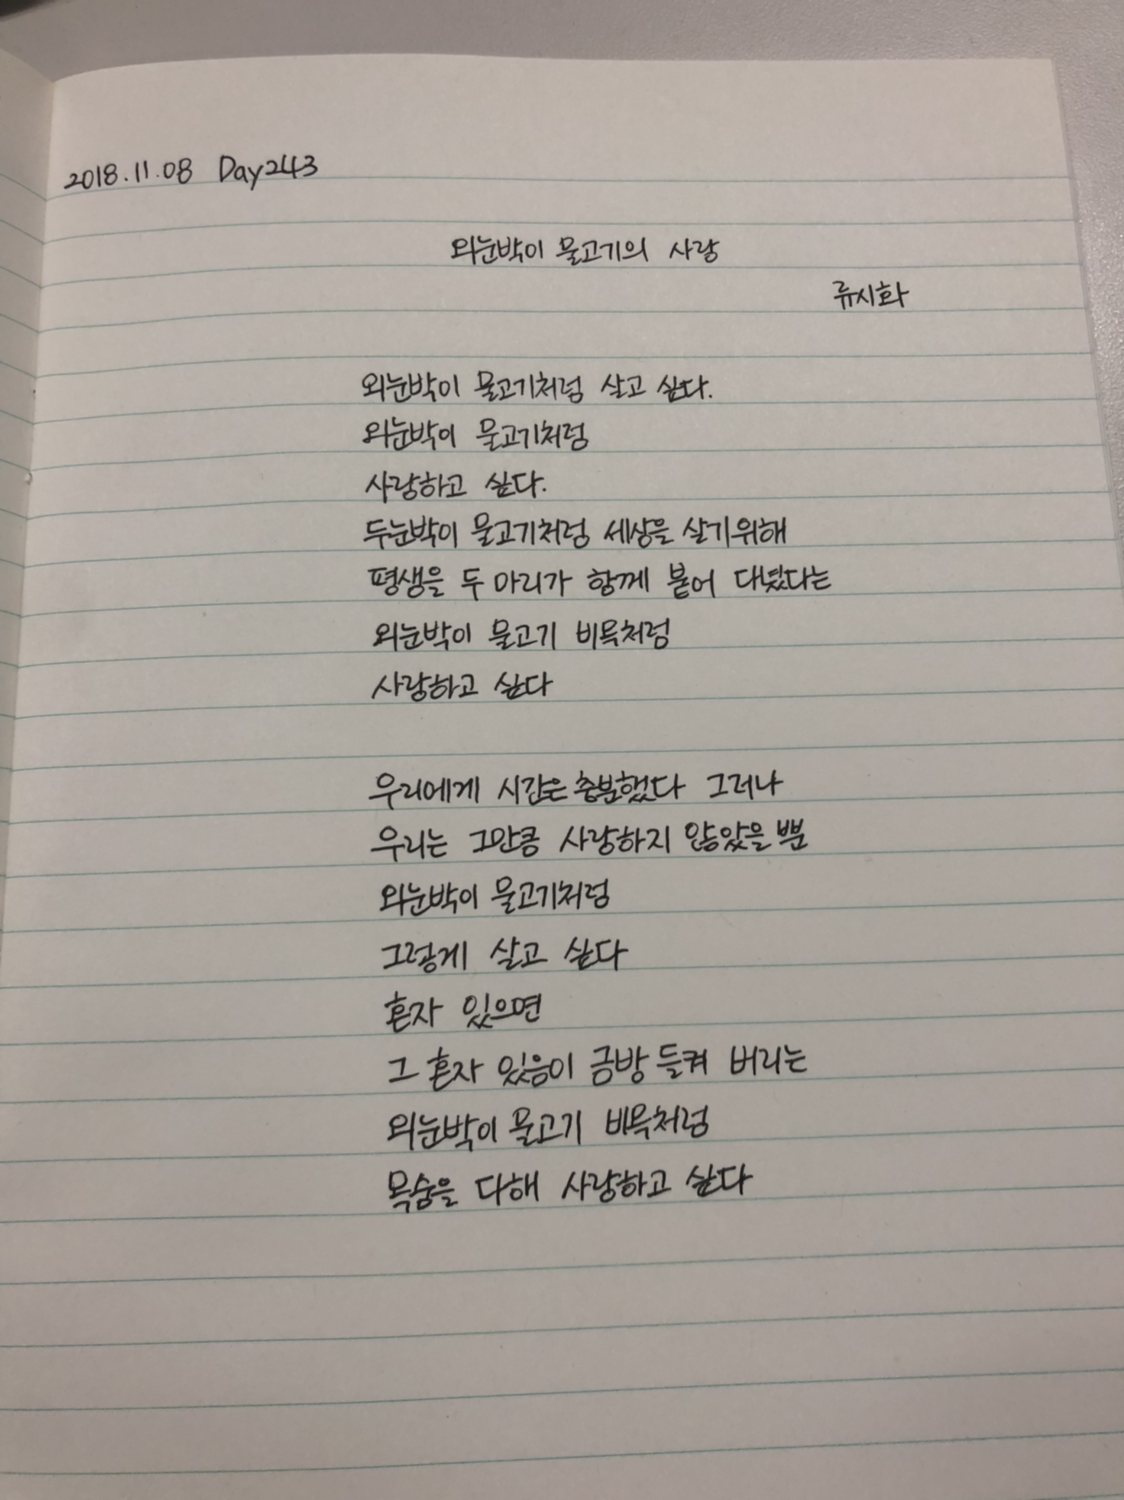 2018.11.08 Day243
외눈박이 물고기의 사랑
류시화
외눈박이 물고기처럼 살고 싶다.
외눈박이 물고기처럼
사랑하고 싶다.
두눈박이 물고기처럼 세상을 살기위해
평생을 두 마리가 함께 붙어 다녔다는
외눈박이 물고기 비목처럼
사랑하고 싶다
우리에게 시간은 충분했다 그러나
우리는 그만큼 사랑하지 않았을 뿐
외눈박이 물고기처럼
그렇게 살고 싶다
혼자 있으면
그 혼자 있음이 금방 들켜 버리는
외눈박이 물고기 비목처럼
목숨을 다해 사랑하고 싶다